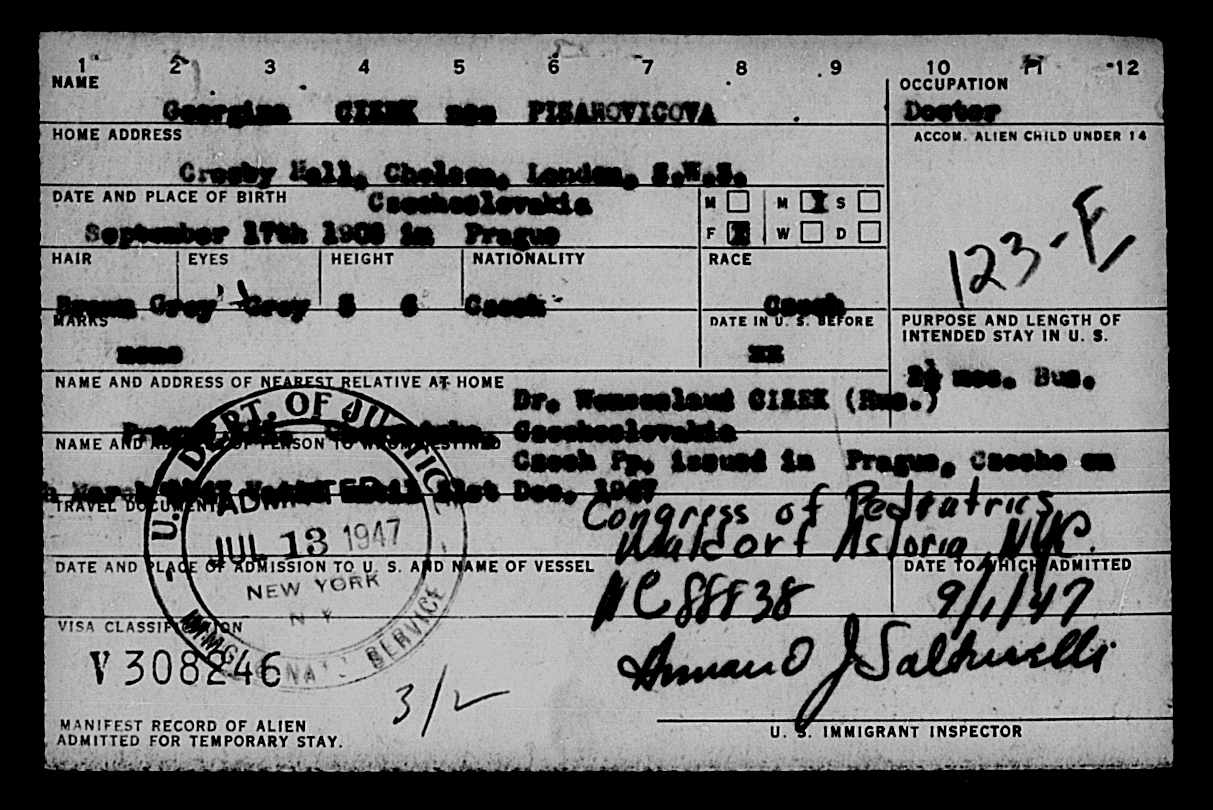 1 2 3 4 5 6 7 8 9 10 11 12
NAME
Georgina CIZEK nee PISAROVICOVA
OCCUPATION
Doctor
HOME ADDRESS
ACCOM. ALIEN CHILD UNDER 14
Crosby Hall, Chelsea, London, S.W.3.
DATE AND PLACE OF BIRTH
Czechoslovakia
September 17th in Prague
M M X S
F X W D
123-E
HAIR EYES HEIGHT NATIONALITY RACE
Brown Grey Grey 5 6 Czech Czech
MARKS
none
DATE IN U. S. BEFORE
xx
PURPOSE AND LENGTH OF
INTENDED STAY IN U. S.
2½ mos. Bus.
NAME AND ADDRESS OF NEAREST RELATIVE AT HOME
Dr. Wenceslaus CIZEK (Hus.)
Prague XII, Czechoslovakia
NAME AND ADDRESS OF PERSON TO WHOM DESTINED
Czech Pp. issued in Prague, Czecho on
March 1947 Valid until 31st Dec. 1947
TRAVEL DOCUMENT
Congress of Pediatrics
Waldorf Astoria, NYC.
DATE AND PLACE OF ADMISSION TO U. S. AND NAME OF VESSEL
DATE TO WHICH ADMITTED
NC88838
9/1/47
U. S. DEPT. OF JUSTICE
ADMITTED
JUL 13 1947
NEW YORK
N Y
IMMIG. NAT'Z SERVICE
VISA CLASSIFICATION
V 308246
3/2
MANIFEST RECORD OF ALIEN
ADMITTED FOR TEMPORARY STAY.
U. S. IMMIGRANT INSPECTOR